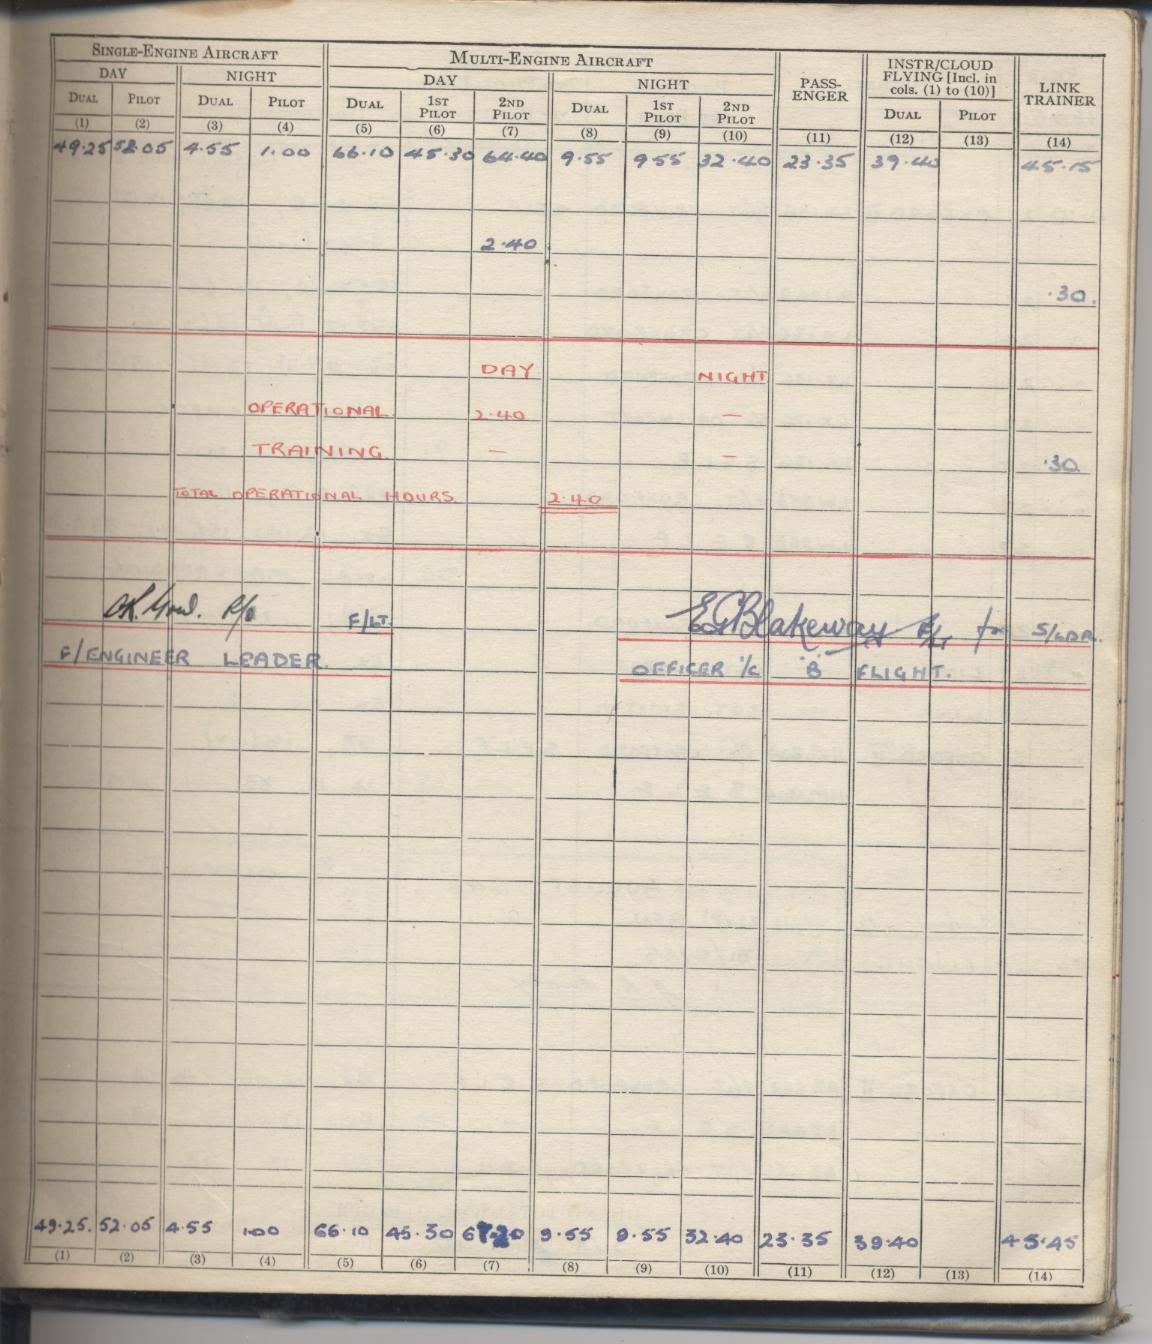 SINGLE-ENGINE AIRCRAFT MULTI-ENGINE AIRCRAFT PASS-ENGER INSTR/CLOUD FLYING [Incl. in cols. (1) to (10)] LINK TRAINER
DAY NIGHT DAY NIGHT
DUAL PILOT DUAL PILOT DUAL 1ST PILOT 2ND PILOT DUAL 1ST PILOT 2ND PILOT DUAL PILOT
(1) (2) (3) (4) (5) (6) (7) (8) (9) (10) (11) (12) (13) (14)
49.25 52.05 4.55 1.00 66.10 45.30 64.40 9.55 9.55 32.40 23.35 39.40 45.15
2.40
.30.
DAY NIGHT
OPERATIONAL. 2.40 —
TRAINING. — — .30
TOTAL OPERATIONAL HOURS 2.40
F/LT. EGBlakeway F/Lt for S/LDR.
F/ENGINEER LEADER. OFFICER I/C 'B' FLIGHT.
49.25. 52.05 4.55 1.00 66.10 45.30 67.20 9.55 9.55 32.40 23.35 39.40 45.45
(1) (2) (3) (4) (5) (6) (7) (8) (9) (10) (11) (12) (13) (14)